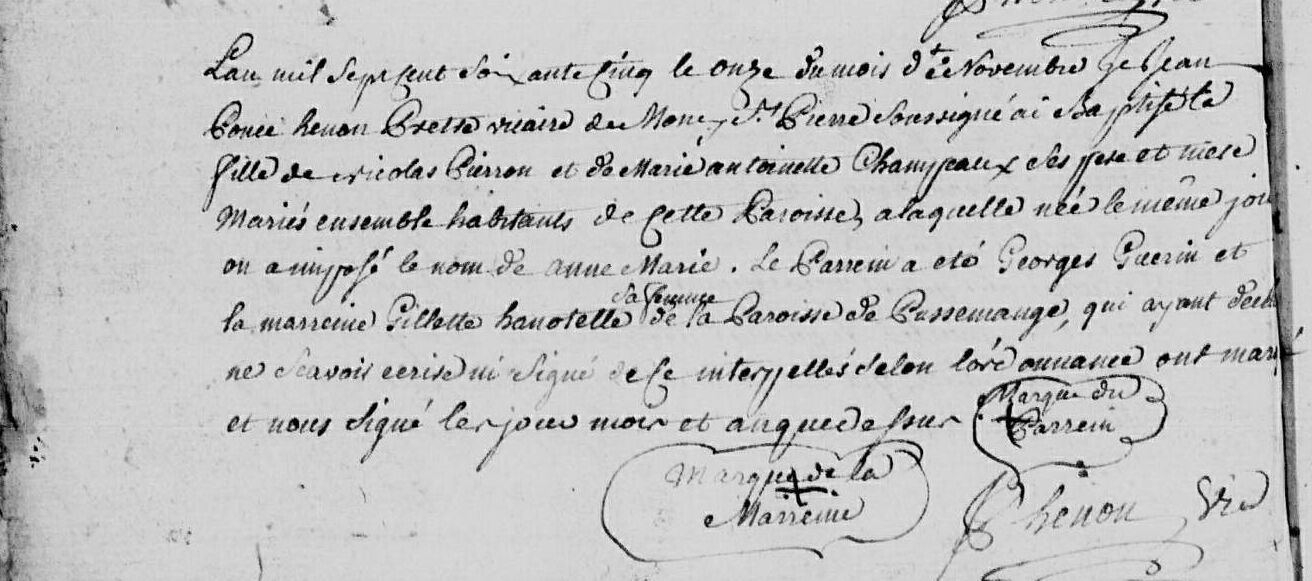 Lan mil sept cent soixante cinq le onze du mois de Novembre Je Jean
henon Prestre vicaire de Moncy St Pierre Soussigné ai Baptisé la
fille de nicolas Pierron et de Marie antoinette Champeaux ses pere et mere
Mariés ensemble habitants de cette Paroisse, a laquelle née le même jour
on a imposé le nom de anne Marie. Le Parrein a eté Georges Guerin et
la marreine Gillette hanotelle sa femme de la Paroisse de Pussemange, qui ayant
ne scavoir ecrire ni signé de ce interpellés selon lordonnance ont
et nous signé les jour mois et an que dessus
Marque du
Parrein
Marque de la
Marreine
henon vic